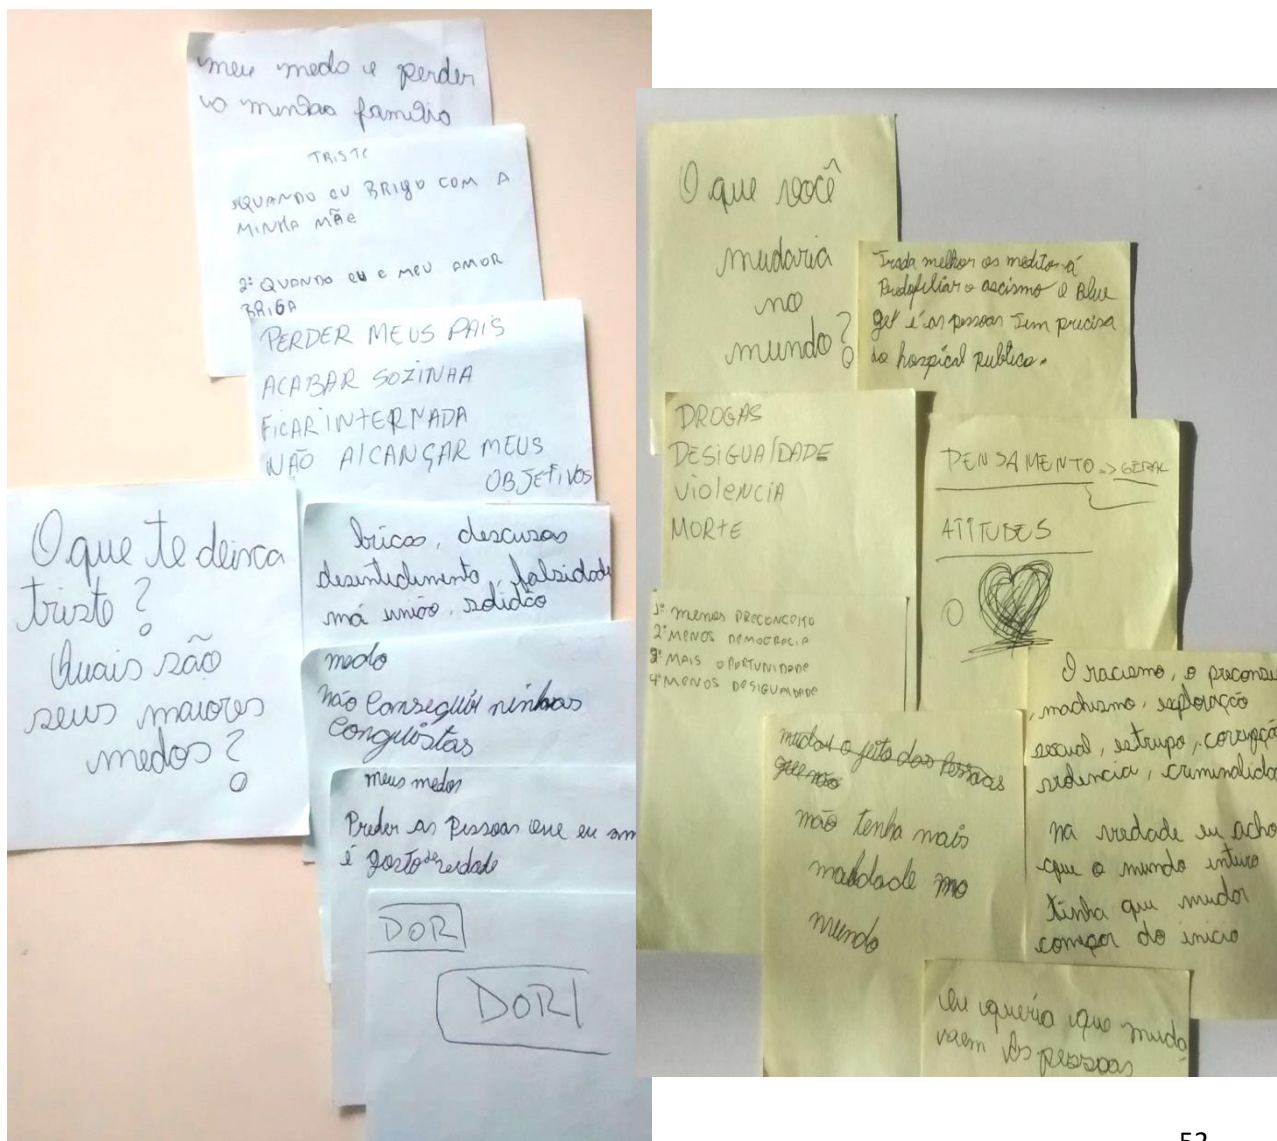 meu medo e perder
a minhas familia
TRISTE
QUANDO EU BRIGO COM A
MINHA MÃE
2º QUANDO EU E MEU AMOR
BRIGA
PERDER MEUS PAIS
ACABAR SOZINHA
FICAR INTERNADA
NÃO AlCANÇAR MEUS
OBJETIVOS
O que te deixa
triste?
Quais são
seus maiores
medos?
bricas, descusas
desentedimento, falsidade
má união, solidão
medo
não Conseguir minhas
Conquistas
meus medos
Preder as Pessoas que eu am
é gosto de verdade
DOR
DOR
O que você
mudaria
no
mundo?
Trada melhor os meditos á
o racismo e Blue
é as pessoas tem precisa
do hospical publico.
DROGAS
DESIGUAlDADE
VIolENCIA
MORTE
PENSAMENTO -> GERAL
ATITUDES
O
1º MENOS PRECONCEITO
2º MENOS DEMOCRACIA
3º MAIS OPORTUNIDADE
4º MENOS DESIGUALDADE
mudar o jeito das Pessoas
que não
não tenha mais
maldade no
mundo
O racismo, o preconcei
, machismo, exploração
sexual, estrupo, corrupção
violencia, criminalida
na verdade eu acho
que o mundo inteiro
tinha que mudar
começar do inicio
eu queria que muda
raem As pessoas
52